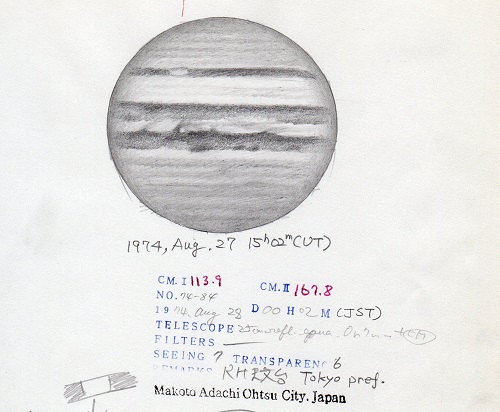 1974, Aug. 27 15h02m(UT)
CM.I 113.9 CM.II 167.8
NO. 74-84
1974. Aug 28 D00H02M (JST)
TELESCOPE 25cm refl.
FILTERS
SEEING 7 TRANSPARENC 6
REMARKS Tokyo pref.
Makoto Adachi Ohtsu City. Japan